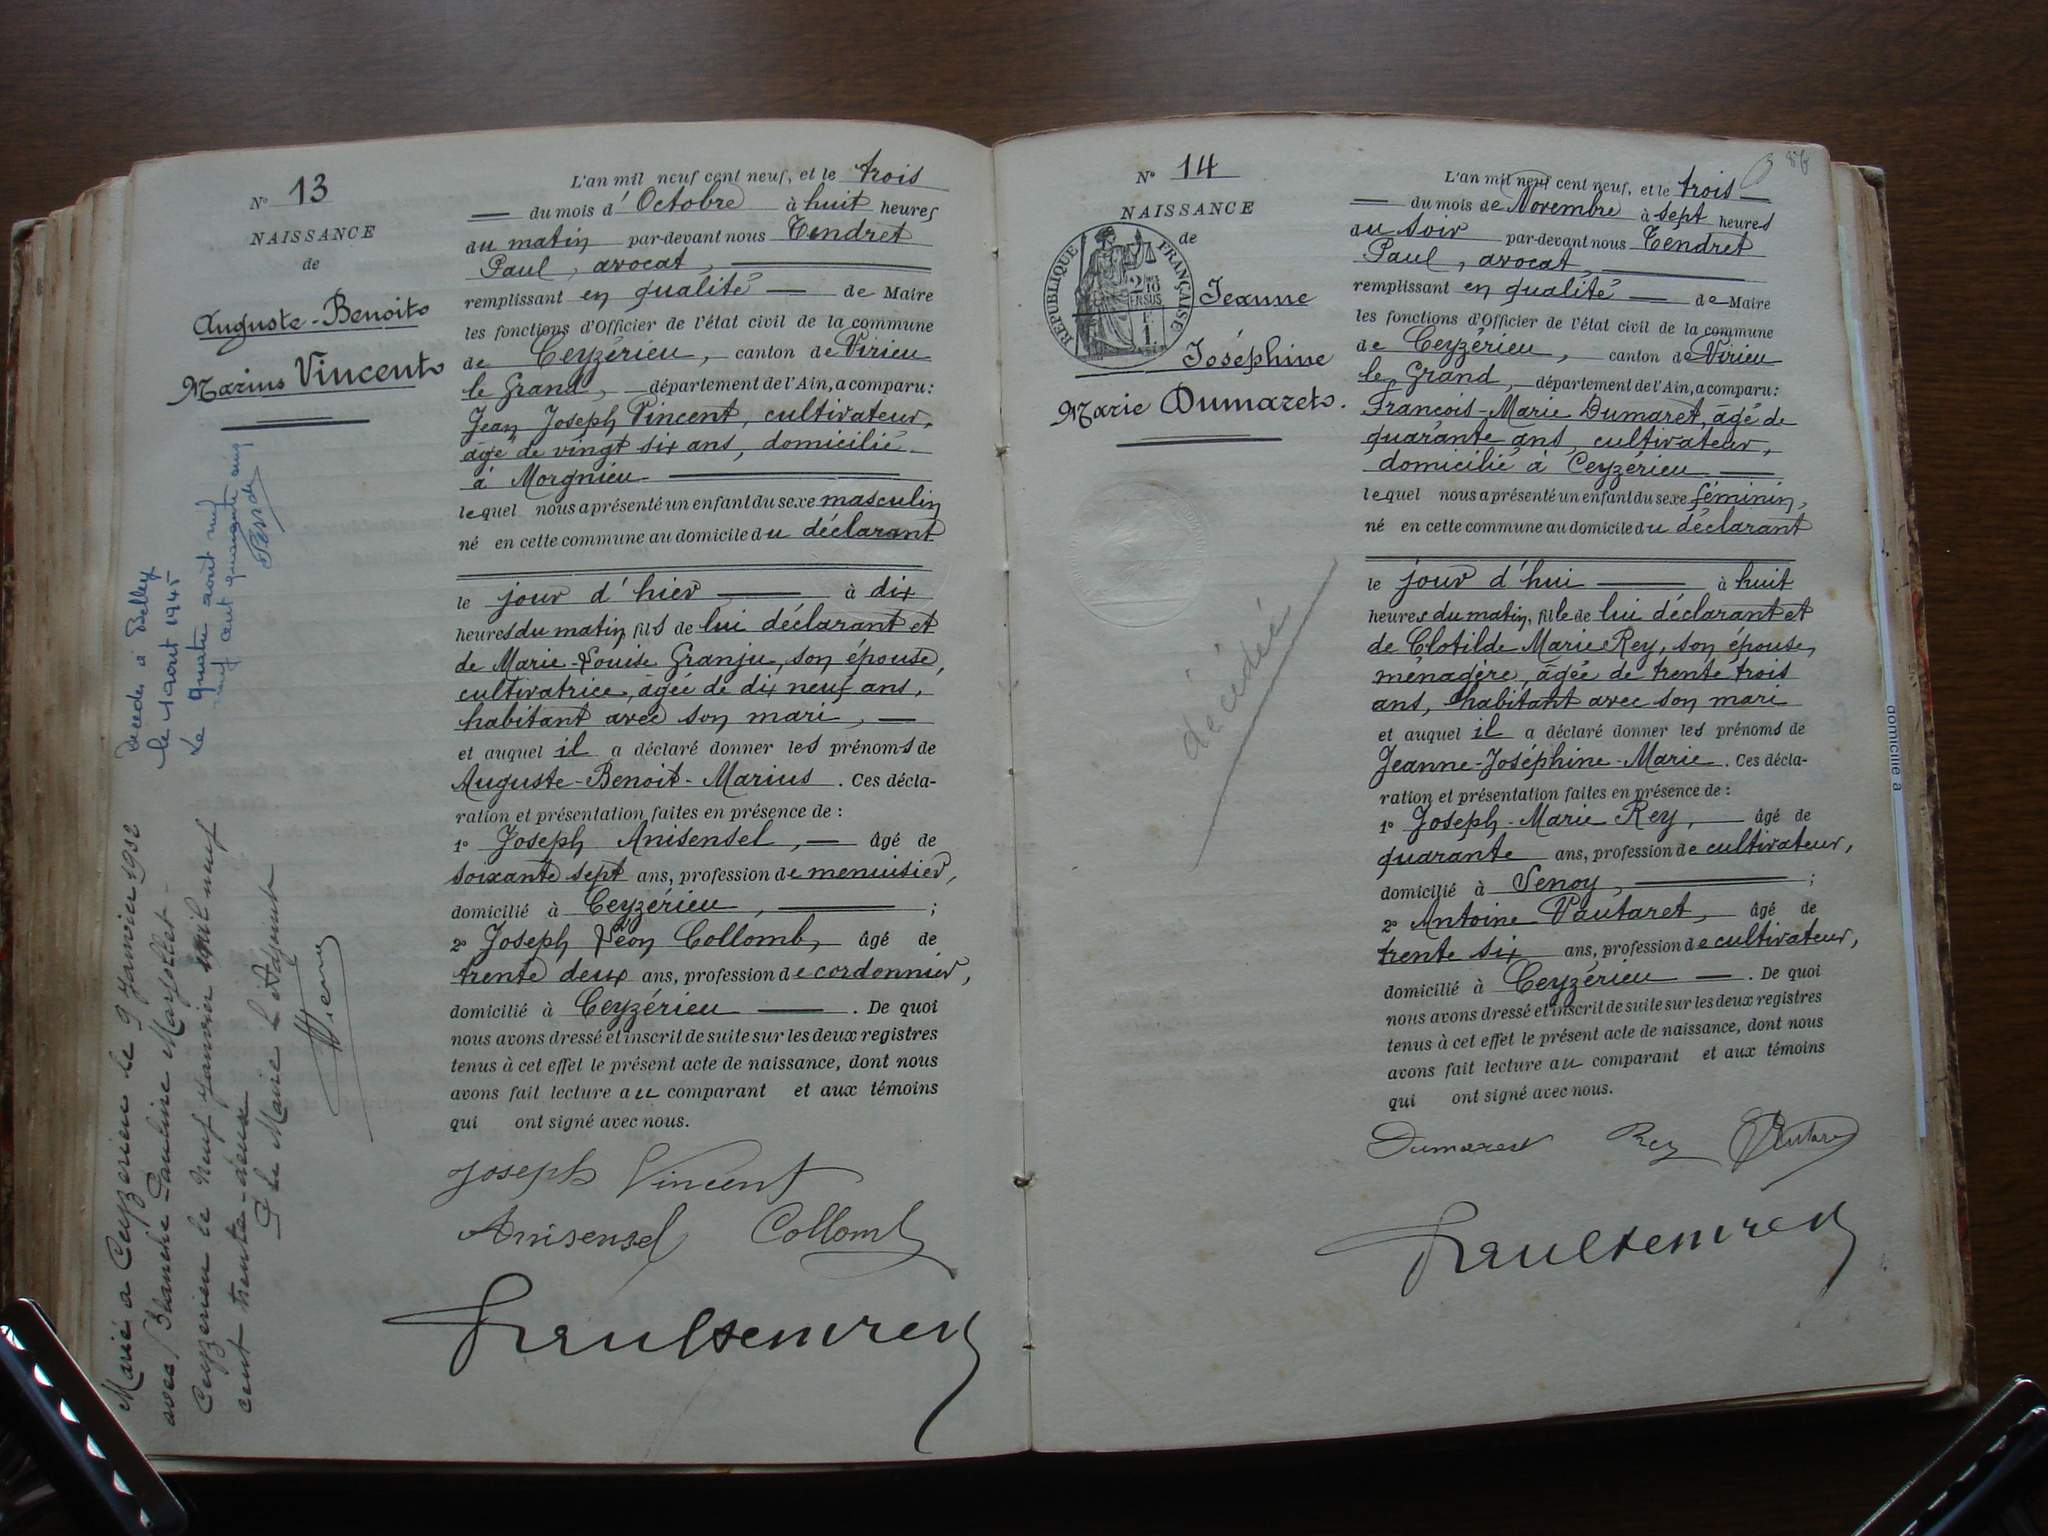 N° 13
NAISSANCE
de
Auguste-Benoit
Marius Vincent
Décédé à Belley
le 4 août 1945
Le quatre août neuf
cent quarante cinq
Marié à Ceyzerieu le 9 Janvier 1932
avec Blanche Pauline
Ceyzerieu le neuf janvier mil neuf
cent trente-deux
Le Maire L'Adjoint
L'an mil neuf cent neuf, et le trois
du mois d'Octobre à huit heures
du matin par-devant nous Tendret
Paul, avocat,
remplissant en qualité de Maire
les fonctions d'Officier de l'état civil de la commune
de Ceyzérieu, canton de Virieu
le Grand, département de l'Ain, a comparu :
Jean Joseph Vincent, cultivateur,
âgé de vingt six ans, domicilié
à Morgnieu
lequel nous a présenté un enfant du sexe masculin
né en cette commune au domicile du déclarant
le jour d'hier à dix
heures du matin, fils de lui déclarant et
de Marie-Louise Granju, son épouse,
cultivatrice, âgée de dix neuf ans,
habitant avec son mari,
et auquel il a déclaré donner les prénoms de
Auguste-Benoit-Marius. Ces décla-
ration et présentation faites en présence de :
1° Joseph Anisensel, âgé de
soixante sept ans, profession de menuisier,
domicilié à Ceyzérieu, ;
2° Joseph Léon Collomb, âgé de
trente deux ans, profession de cordonnier,
domicilié à Ceyzérieu. De quoi
nous avons dressé et inscrit de suite sur les deux registres
tenus à cet effet le présent acte de naissance, dont nous
avons fait lecture au comparant et aux témoins
qui ont signé avec nous.
Joseph Vincent
Anisensel Collomb
Paul Tendret
N° 14
NAISSANCE
de
RÉPUBLIQUE FRANÇAISE
Jeanne
Joséphine
Marie Dumaret.
décédée
L'an mil neuf cent neuf, et le trois
du mois de Novembre à sept heures
du soir par-devant nous Tendret
Paul, avocat,
remplissant en qualité de Maire
les fonctions d'Officier de l'état civil de la commune
de Ceyzérieu, canton de Virieu
le Grand, département de l'Ain, a comparu :
François-Marie Dumaret, âgé de
quarante ans, cultivateur,
domicilié à Ceyzérieu
lequel nous a présenté un enfant du sexe féminin,
né en cette commune au domicile du déclarant
le jour d'hui à huit
heures du matin, fille de lui déclarant et
de Clotilde Marie Rey, son épouse,
ménagère, âgée de trente trois
ans, habitant avec son mari
et auquel il a déclaré donner les prénoms de
Jeanne-Joséphine-Marie. Ces décla-
ration et présentation faites en présence de :
1° Joseph-Marie Rey, âgé de
quarante ans, profession de cultivateur,
domicilié à Senoy, ;
2° Antoine Vautaret, âgé de
trente six ans, profession de cultivateur,
domicilié à Ceyzérieu. De quoi
nous avons dressé et inscrit de suite sur les deux registres
tenus à cet effet le présent acte de naissance, dont nous
avons fait lecture au comparant et aux témoins
qui ont signé avec nous.
Dumaret Rey Vautaret
Paul Tendret
domicilié à